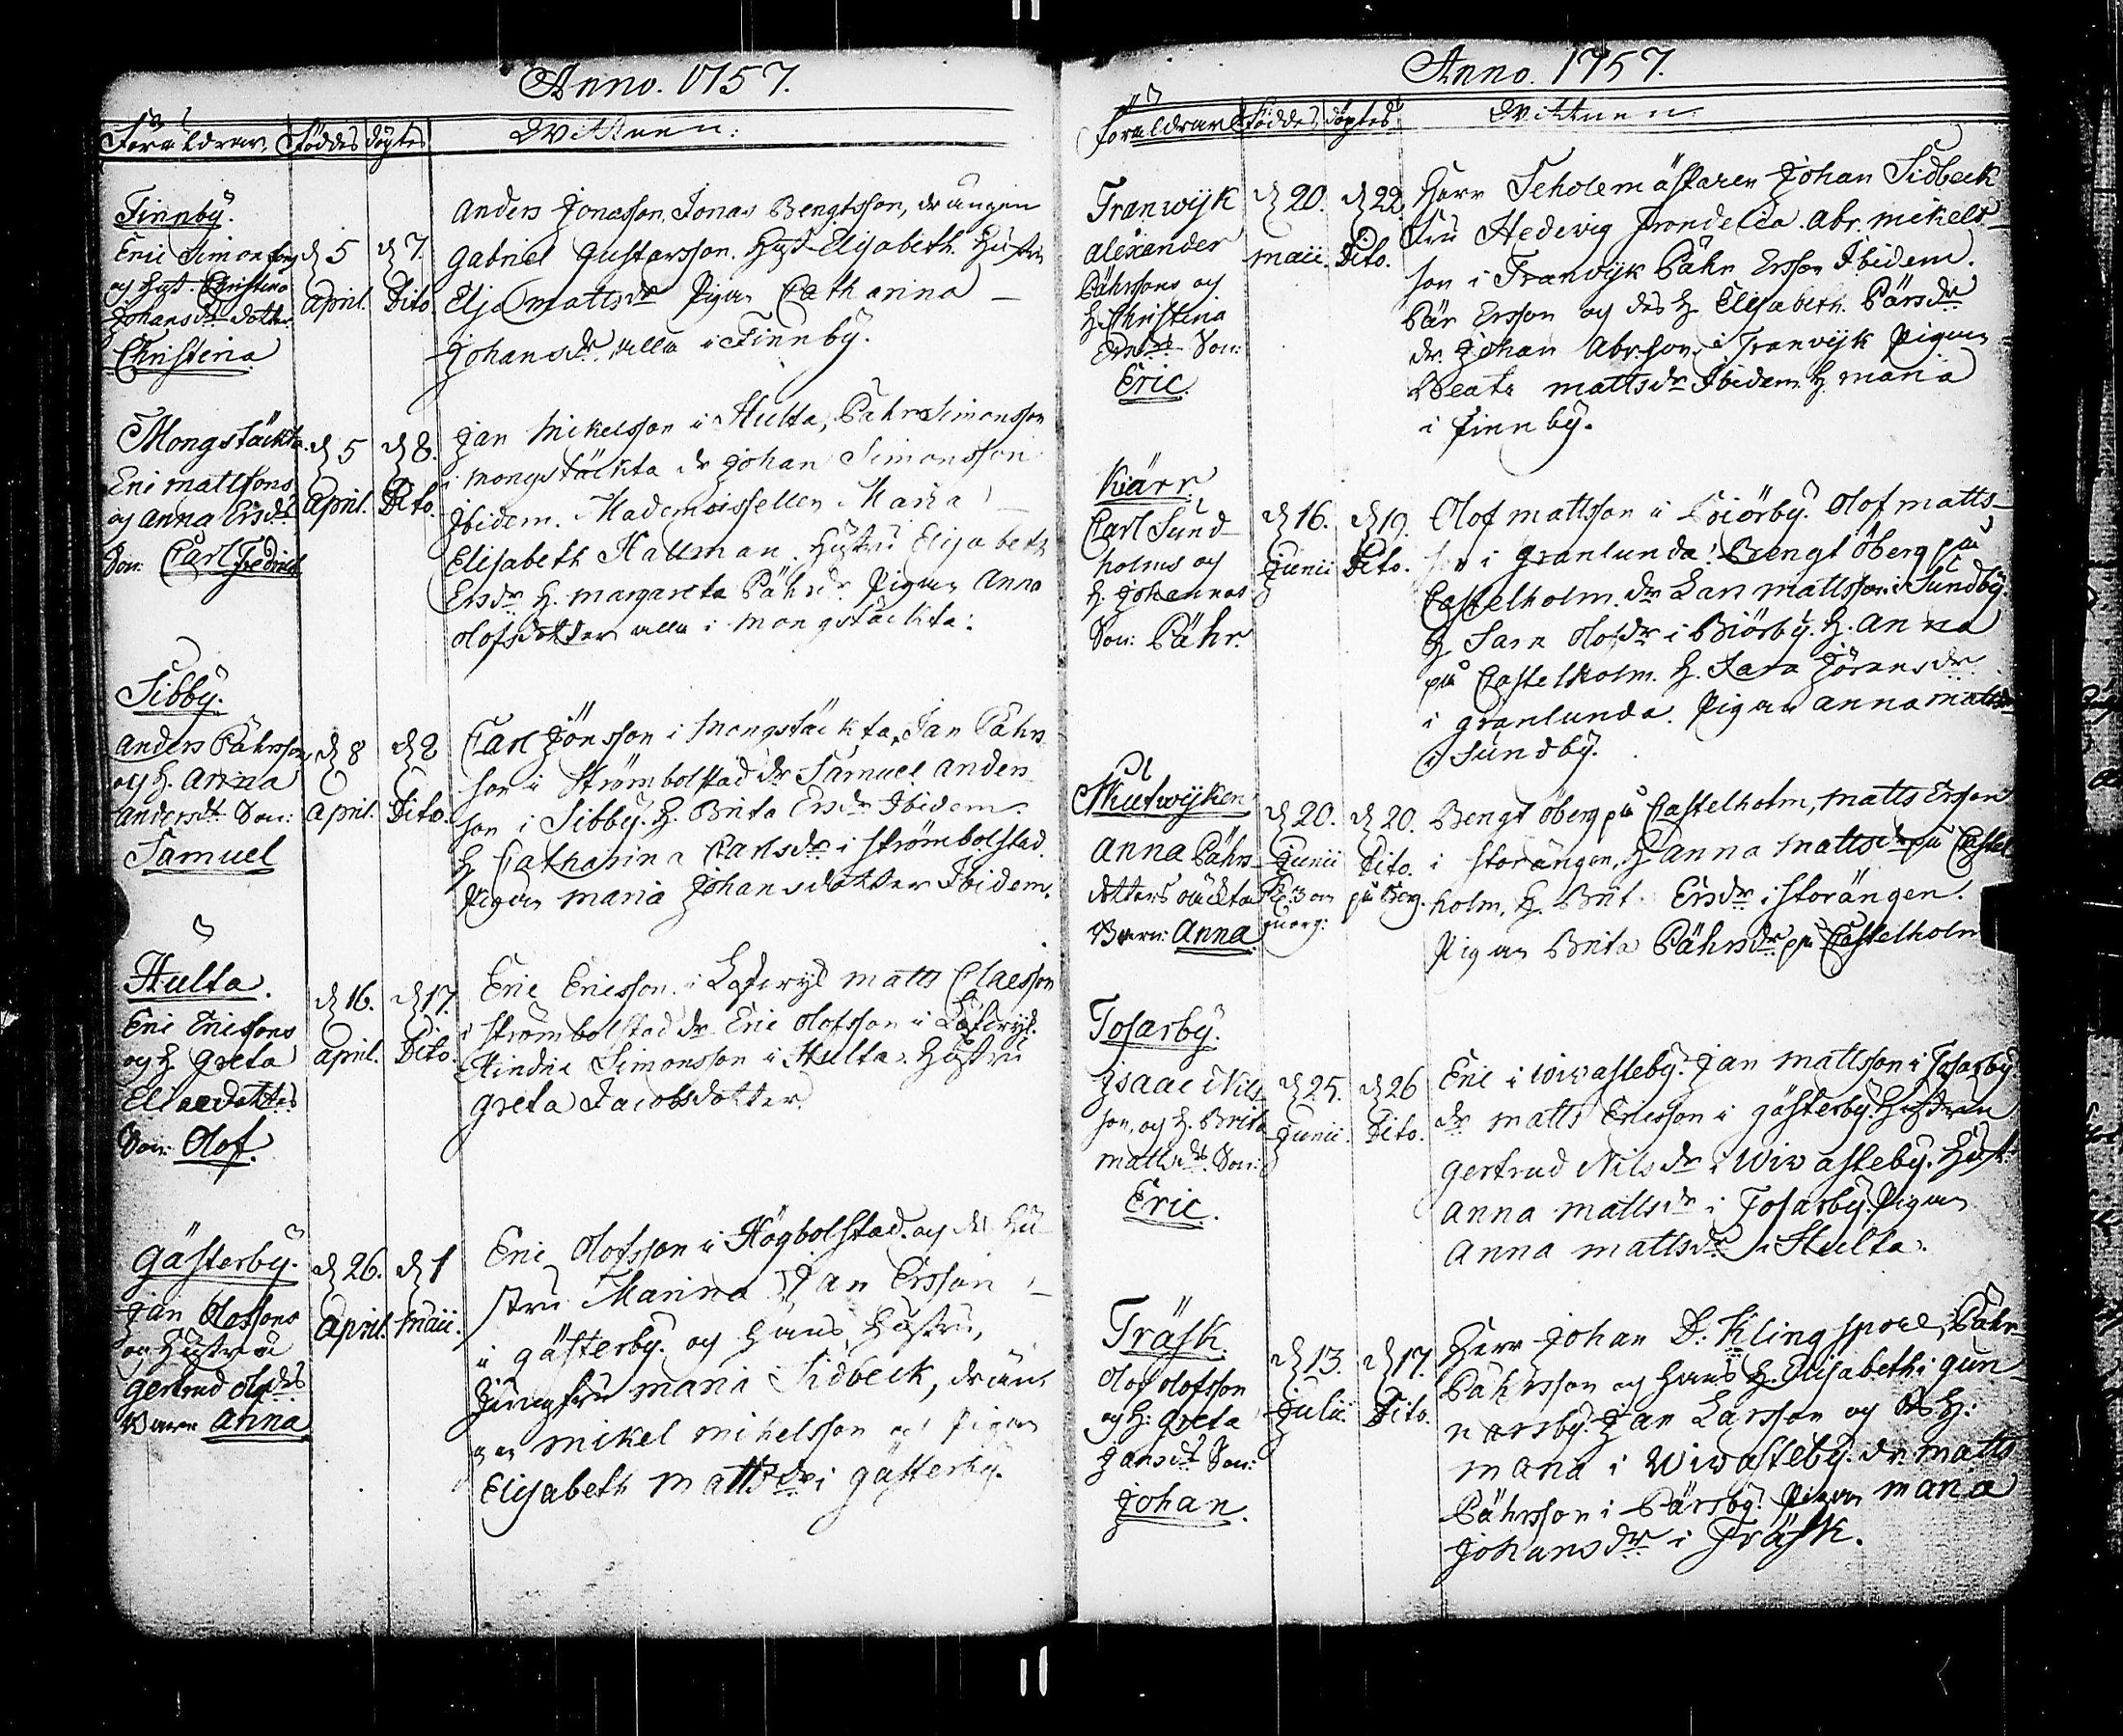 Anno. 1757.
Föräldrar. Föddes döptes Wittnen:
Finnby.
Eric Simonsons
og Hust. Christina
Johansdr dotter
Christina
d 5
April.
d 7.
Dito
Anders Jonasson, Jonas Bengtsson, drängen
Gabriel Gustavsson. Hust Elisabeth. Hustru
Elja Mattsdr Pigan Catharina
Johansdr alla i Finnby.
Mongstäckta
Eric Mattsons
og Anna Ersdrs
Son: Carl Fredrich
d 5
April.
d 8.
Dito.
Jan Mikelsson i Hulta, Pahr Simonsson
i Mongstäckta dr Johan Simonsson
Ibidem. Mademoissellen Maria
Elisabeth Hallman. Hustru Elisabeth
Ersdr H. Margareta Pährsdr Pigan Anna
Olofsdotter alla i Mongstäckta.
Sibby.
Anders Pährsson
og H. Anna
Andersdr Son:
Samuel
d 8
April.
d 8
Dito.
Carl Jönsson i Mongstäckta, Jan Pährs
son i Strömbolstad dr Samuel Anders
son i Sibby. H. Brita Ersdr Ibidem.
H Catharina Carlsdr i Strömbolstad.
Pigan Maria Johansdotter Ibidem.
Hulta.
Eric Ericssons
og H Greta
dotters
Son: Olof.
d 16.
April.
d 17.
Dito.
Eric Ericsson i Matts Claesson
i Strömbolstad dr Eric Olofsson i
Hindric Simonsson i Hulta. Hustru
Greta Jacobsdotter.
Gästerby.
Jan Olossons
og Hustru
Gertrud Olofsdrs
Barn Anna
d 26.
April.
d 1
Maii.
Eric Olofsson i Högbolstad. og des Hu
stru Marina Jan Ersson
i Gästerby. og hans Hustru,
Jungfru Maria Sidbeck, dräng
gen Mikel Mikelsson og Pigan
Elisabeth Mattsdr i Gästerby.
Anno. 1757.
Föräldrar Föddes, döptes. Wittnen
Tranwijk
Alexander
Pährssons og
H. Christina
Ersdrs Son:
Eric.
d 20.
Maii.
d 22
Dito.
Herr Scholemästaren Johan Sidbeck
Fru Hedevig Frondelia. Abr. Mikels-
son i Tranvijk Pähr Ersson Ibidem.
Pär Ersson og des H. Elisabeth Pärsdr
dr. Johan Abr.son i Tranvijk Pigan
Beata Mattsdr Ibidem H. Maria
i Finnby.
Kiärr.
Carl Sund-
holms og
H. Johannas
Son: Pähr.
d 16.
Junii
d 19.
Dito.
Olof Mattsson i Biörby. Olof Matts-
son i Granlunda. Bengt Öberg på
Castelholm. dr Lars Mattsson i Sundby.
H Sara Olofsdr i Biörby. H. Anna
på Castelholm. H. Sara Jöransdr
i Granlunda. Pigan Anna Mattsdr
i Sundby.
Skutwijken
Anna Pährs
dotters oäckta
Barn: Anna
d 20.
Junii
Kl. 3 om
morg:
d 20.
Dito.
på Berg.
Bengt Öberg på Castelholm, Matts Ersson
i Storängen, H Anna Mattsdr på Castel
holm, H. Brit. Ersdr i Storängen.
Pigan Brita Pährsdr på Castelholm
Tosarby.
Isaac Nils
son, og H. Brita
Mattsdrs Son:
Eric.
d 25.
Junii.
d 26
Dito.
Eric i Wivasteby. Jan Mattsson i Tosarby
dr Matts Ericsson i Gästerby. Hustrun
Gertrud Nilsdr i Wivasteby. Hust:
Anna Mattsdr i Tosarby. Pigan
Anna Mattsdr i Hulta.
Träsk.
Olof Olofsson
og H: Greta
Jansdr Son:
Johan.
d 13.
Julii.
d 17.
Dito.
Herr Johan D: Klingspore, Pähr
Pährsson og hans H. Elisabeth i Gun-
narsby. Jan Larsson og des H:
Maria i Wivasteby. dr Matts
Pährsson i Pärsby. Pigan Maria
Johansdr i Träsk.